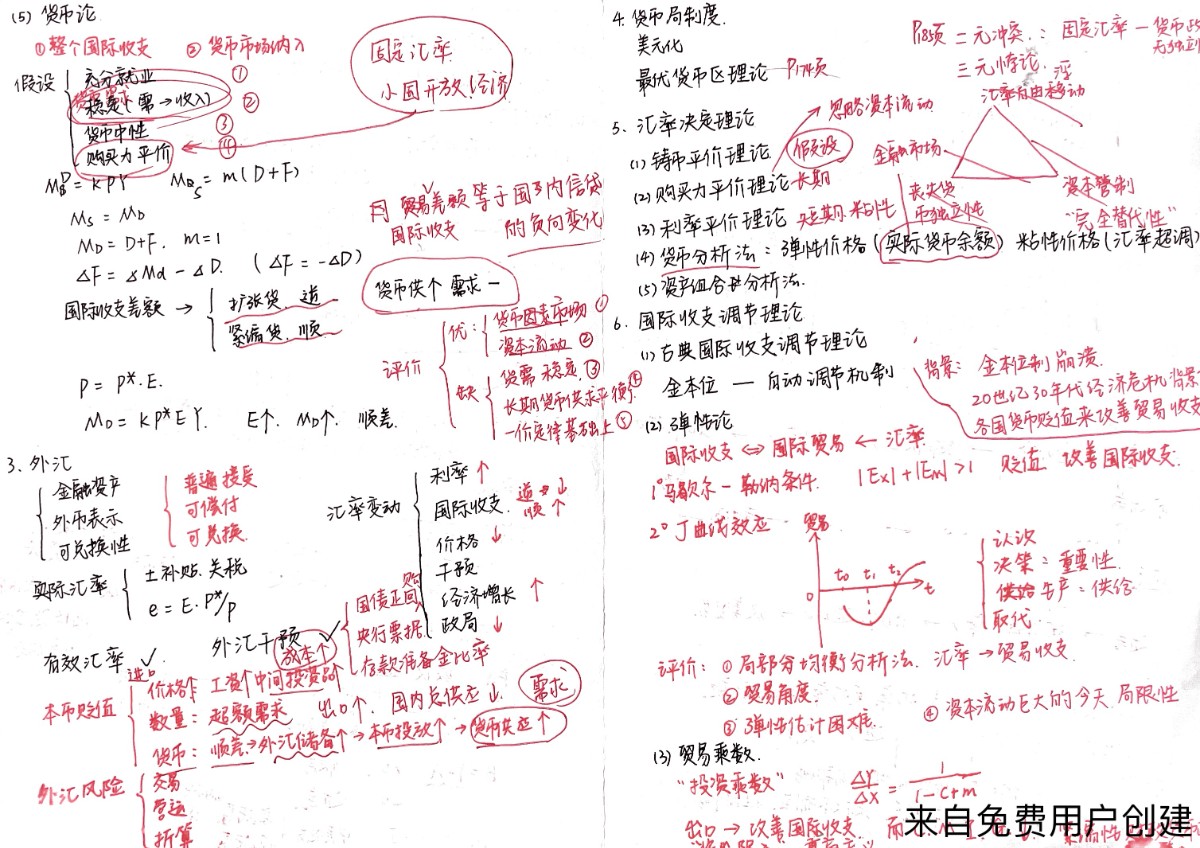 (5) 货币论
①整个国际收支 ②货币市场纳入
固定汇率
小国开放经济
假设
充分就业 ①
稳定 需→收入 ②
货币中性 ③
购买力平价 ④
M_D = kPY M_S = m(D+F)
M_S = M_D
M_D = D+F. m=1
ΔF = ΔMd - ΔD. (ΔF = -ΔD)
贸易差额等于国内信贷
国际收支 的负向变化
货币供个需求一
国际收支差额 →
扩张货. 逆
紧缩货. 顺
评价
优:
货币因素市场 ①
资本流动 ②
缺
货需稳定 ③
长期货币供求平衡 ④
一价定律基础上 ⑤
P = P*·E.
M_D = kP*EY. E↑. M_D↑. 顺差.
3. 外汇
金融资产
外币表示
可兑换性
普遍接受
可偿付
可兑换
汇率变动
利率↑
国际收支 逆↓ 顺↑
价格↓
干预
经济增长↑
政局↓
实际汇率
±补贴.关税
e = E·P*/P
外汇干预
国债正回购
央行票据
存款准备金比率
有效汇率 ✓
成本↑
本币贬值
价格: 进口↑ 工资↑中间投资品↑
数量: 超额需求 出口↑. 国内总供应↓. 需求
货币: 顺差→外汇储备↑→本币投放↑→货币供应↑
外汇风险
交易
营运
折算
4. 货币局制度.
美元化
最优货币区理论 P17页
二元冲突.: 固定汇率—货币政
无独立
三元悖论. 浮
汇率自由移动
金融市场
资本管制
丧失货
币独立性
"完全替代性"
5. 汇率决定理论
忽略资本流动
(1) 铸币平价理论 假设
(2) 购买力平价理论 长期
(3) 利率平价理论 短期.粘性
(4) 货币分析法: 弹性价格(实际货币余额) 粘性价格(汇率超调)
(5) 资产组合分析法.
6. 国际收支调节理论
(1) 古典国际收支调节理论
金本位 — 自动调节机制
背景: 金本位制崩溃
20世纪30年代经济危机背景
各国货币贬值来改善贸易收支
(2) 弹性论
国际收支 ⇔ 国际贸易 ← 汇率
1° 马歇尔-勒纳条件. |Ex|+|Em|>1 贬值 改善国际收支.
2° J曲线效应
贸易
0 t₀ t₁ t₂ t
认识
决策: 重要性
供给生产: 供给
取代
评价: ①局部分均衡分析法. 汇率→贸易收支.
②贸易角度.
③弹性估计困难. ④资本流动巨大的今天 局限性
(3) 贸易乘数.
"投资乘数" ΔY/ΔX = 1/(1-c+m)
出口→改善国际收支.
来自免费用户创建